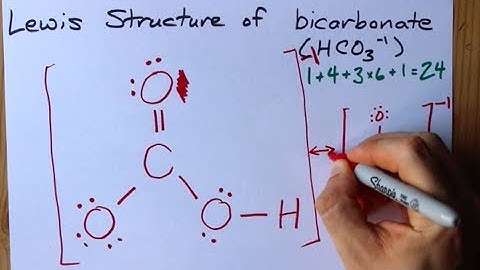 Lewis Structure of bicarbonate
(HCO₃⁻¹)
1+4+3×6+1=24
-1
-1
O
O
C
O
O-H
Sharpie